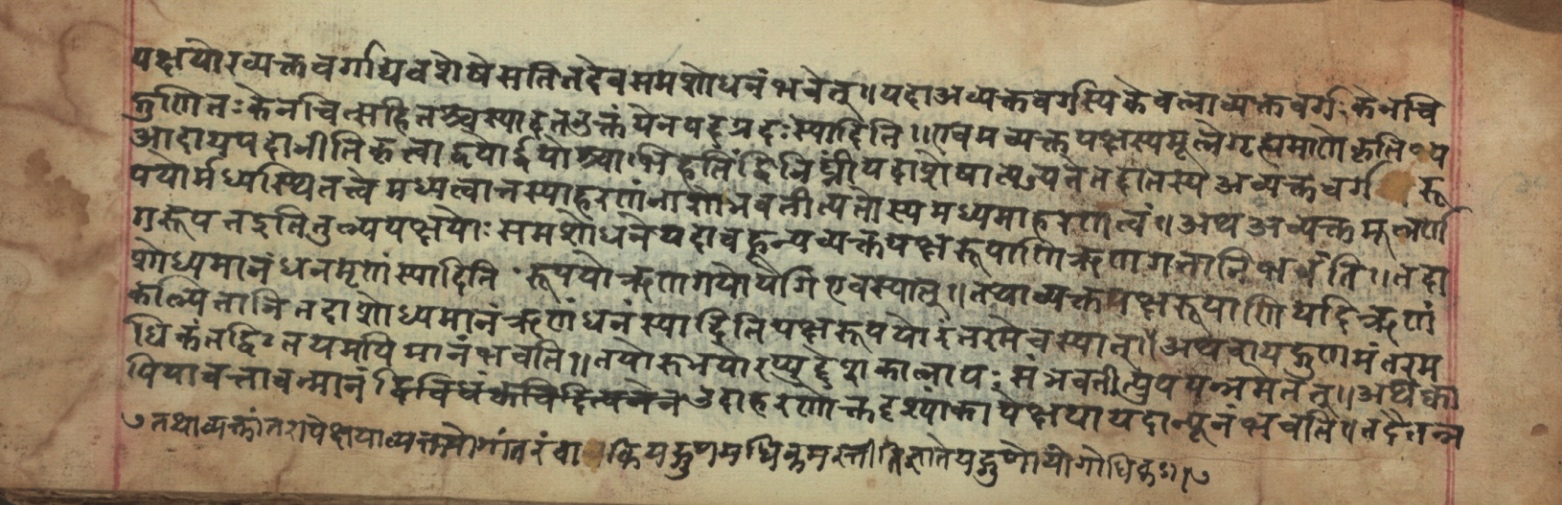 पक्षयोरव्यक्तवर्गाद्यवशेषे सति तदेव समशोधनं भवेत् ॥ यदा अव्यक्तवर्गस्य केवलाव्यक्तवर्गः केनचि
द्गुणितः केनचित्सहितश्च स्यात् तत्र उक्तं येन पदप्रदः स्यादिति ॥ एवमव्यक्तपक्षस्य मूले गृह्यमाणे कृतिभ्य
आदाय पदानीति कृत्वा द्वयोर्द्वयोश्चाभिहतिं द्विनिघ्नीं यदा शेषात्त्यज्यते तदा तस्य अव्यक्तवर्ग रू
पयोर्मध्यस्थितत्वे मध्यत्वात्तस्याहरणं नाशो भवतीत्यतोस्य मध्यमाहरणत्वं ॥ अथ अव्यक्तमूलर्ण
गरूपत इति तुल्यपक्षयोः समशोधने यदा बहून्यव्यक्तपक्षरूपाणि ऋणगतानि भवंति ॥ तदा
शोध्यमानं धनमृणं स्यादिति रूपयोर्ऋणगयोर्योग एव स्यात् ॥ तथाव्यक्तपक्षरूपाणि यदि ऋणं
कल्पितानि तदा शोध्यमानं ऋणं धनं स्यादिति पक्षरूपयोरंतरमेव स्यात् ॥ अथ वा यद्गुणमंतरम
धिकं तद्द्विगतयमपि मानं भवति ॥ तयोरुभयोरप्युद्देशकालापः संभवतीत्युपपन्नमेतत् ॥ अथैका
पि यावत्तावन्मानं द्विविधं क्वचिदित्यनेन उदाहरणोक्तदृश्यांकापेक्षया यदा न्यूनं भवति ॥ तदैतन्न
तथाव्यक्तांतरापेक्षयाव्यक्तयोगांतरं वा कियद्गुणमधिकमस्तीति ज्ञाते यद्गुणो योगोधिकः ॥